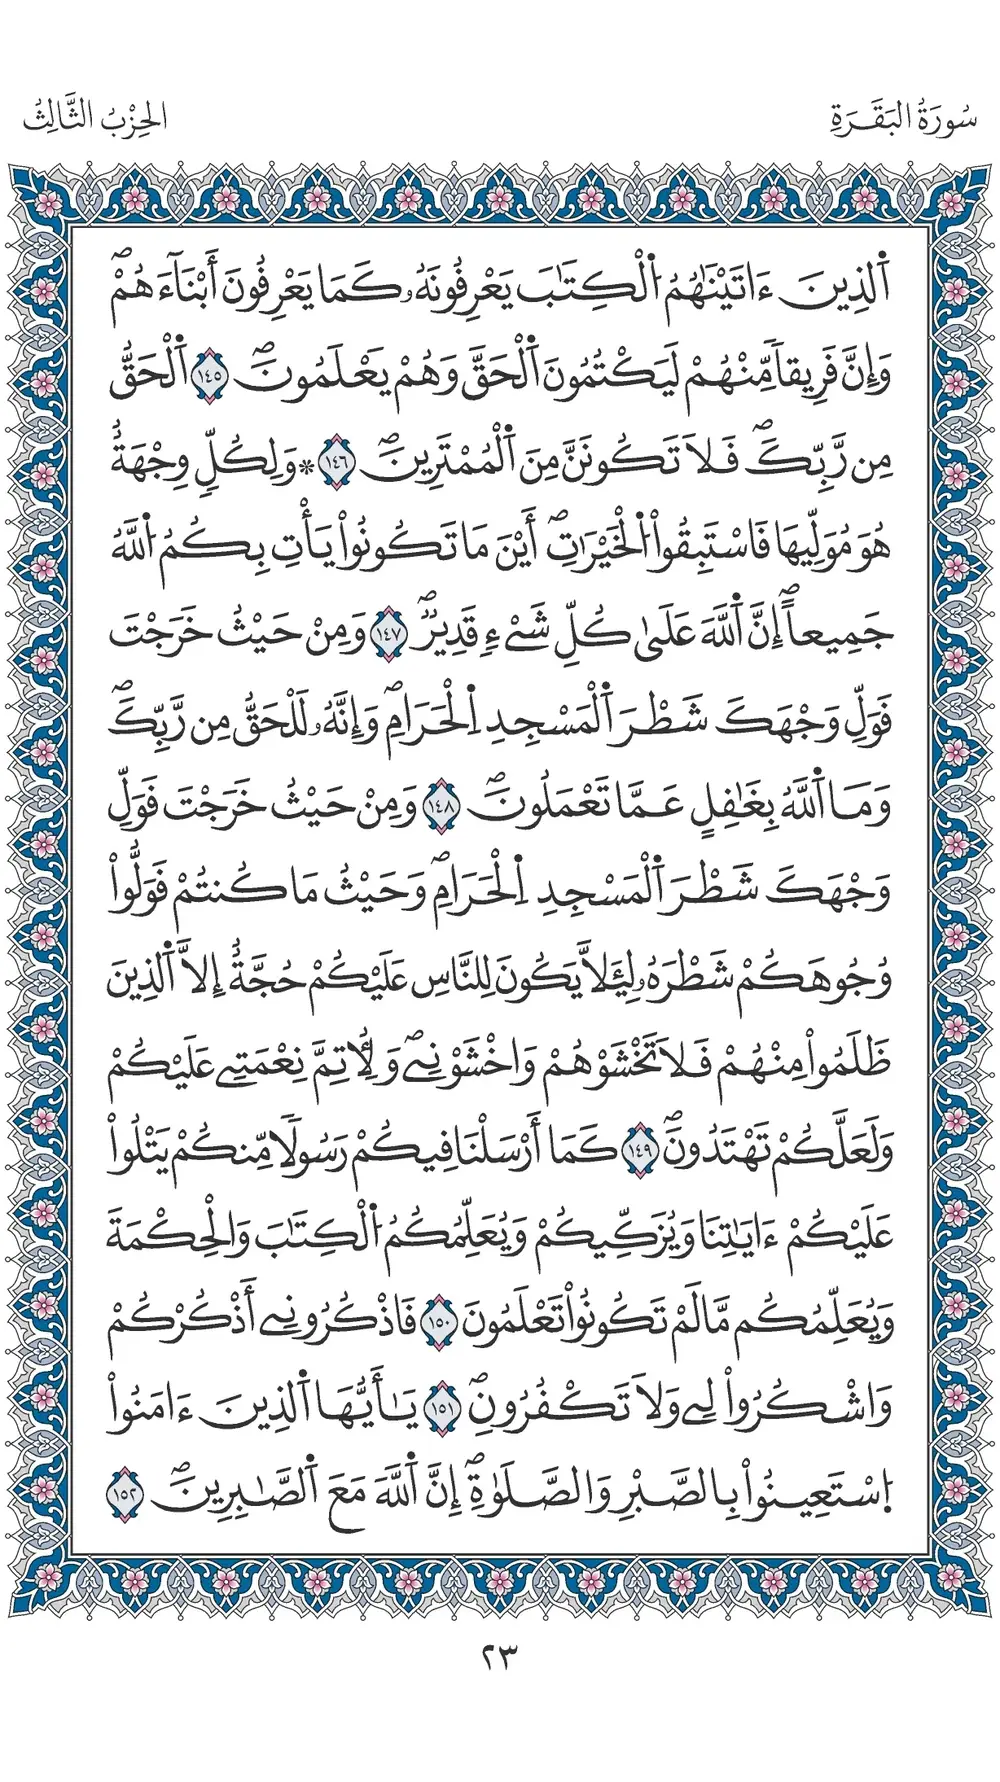 سُورَةُ البَقَرَةِ
الحِزْبُ الثَّالِثُ
اَ۬لذِينَ ءَاتَيْنَٰهُمُ اُ۬لْكِتَٰبَ يَعْرِفُونَهُۥ كَمَا يَعْرِفُونَ أَبْنَآءَهُمْۖ
وَإِنَّ فَرِيقاٗ مِّنْهُمْ لَيَكْتُمُونَ اَ۬لْحَقَّ وَهُمْ يَعْلَمُونَۖ ١٤٥ اَ۬لْحَقُّ
مِن رَّبِّكَۖ فَلَا تَكُونَنَّ مِنَ اَ۬لْمُمْتَرِينَۖ ١٤٦ * وَلِكُلّٖ وِجْهَةٌ
هُوَ مُوَلِّيهَا فَاسْتَبِقُواْ اُ۬لْخَيْرَٰتِۖ أَيْنَ مَا تَكُونُواْ يَأْتِ بِكُمُ اُ۬للَّهُ
جَمِيعاًۖ إِنَّ اَ۬للَّهَ عَلَىٰ كُلِّ شَےْءٖ قَدِيرٞۖ ١٤٧ وَمِنْ حَيْثُ خَرَجْتَ
فَوَلِّ وَجْهَكَ شَطْرَ اَ۬لْمَسْجِدِ اِ۬لْحَرَامِۖ وَإِنَّهُۥ لَلْحَقُّ مِن رَّبِّكَۖ
وَمَا اَ۬للَّهُ بِغَٰفِلٍ عَمَّا تَعْمَلُونَۖ ١٤٨ وَمِنْ حَيْثُ خَرَجْتَ فَوَلِّ
وَجْهَكَ شَطْرَ اَ۬لْمَسْجِدِ اِ۬لْحَرَامِۖ وَحَيْثُ مَا كُنتُمْ فَوَلُّواْ
وُجُوهَكُمْ شَطْرَهُۥ لِئَلَّا يَكُونَ لِلنَّاسِ عَلَيْكُمْ حُجَّةٌ إِلَّا اَ۬لذِينَ
ظَلَمُواْ مِنْهُمْ فَلَا تَخْشَوْهُمْ وَاخْشَوْنِےۖ وَلِأُتِمَّ نِعْمَتِے عَلَيْكُمْ
وَلَعَلَّكُمْ تَهْتَدُونَۖ ١٤٩ كَمَا أَرْسَلْنَا فِيكُمْ رَسُولاٗ مِّنكُمْ يَتْلُواْ
عَلَيْكُمْ ءَايَٰتِنَا وَيُزَكِّيكُمْ وَيُعَلِّمُكُمُ اُ۬لْكِتَٰبَ وَالْحِكْمَةَ
وَيُعَلِّمُكُم مَّا لَمْ تَكُونُواْ تَعْلَمُونَ ١٥٠ فَاذْكُرُونِے أَذْكُرْكُمْ
وَاشْكُرُواْ لِے وَلَا تَكْفُرُونِۖ ١٥١ يَٰأَيُّهَا اَ۬لذِينَ ءَامَنُواْ
اُ۪سْتَعِينُواْ بِالصَّبْرِ وَالصَّلَوٰةِۖ إِنَّ اَ۬للَّهَ مَعَ اَ۬لصَّٰبِرِينَۖ ١٥٢
٢٣